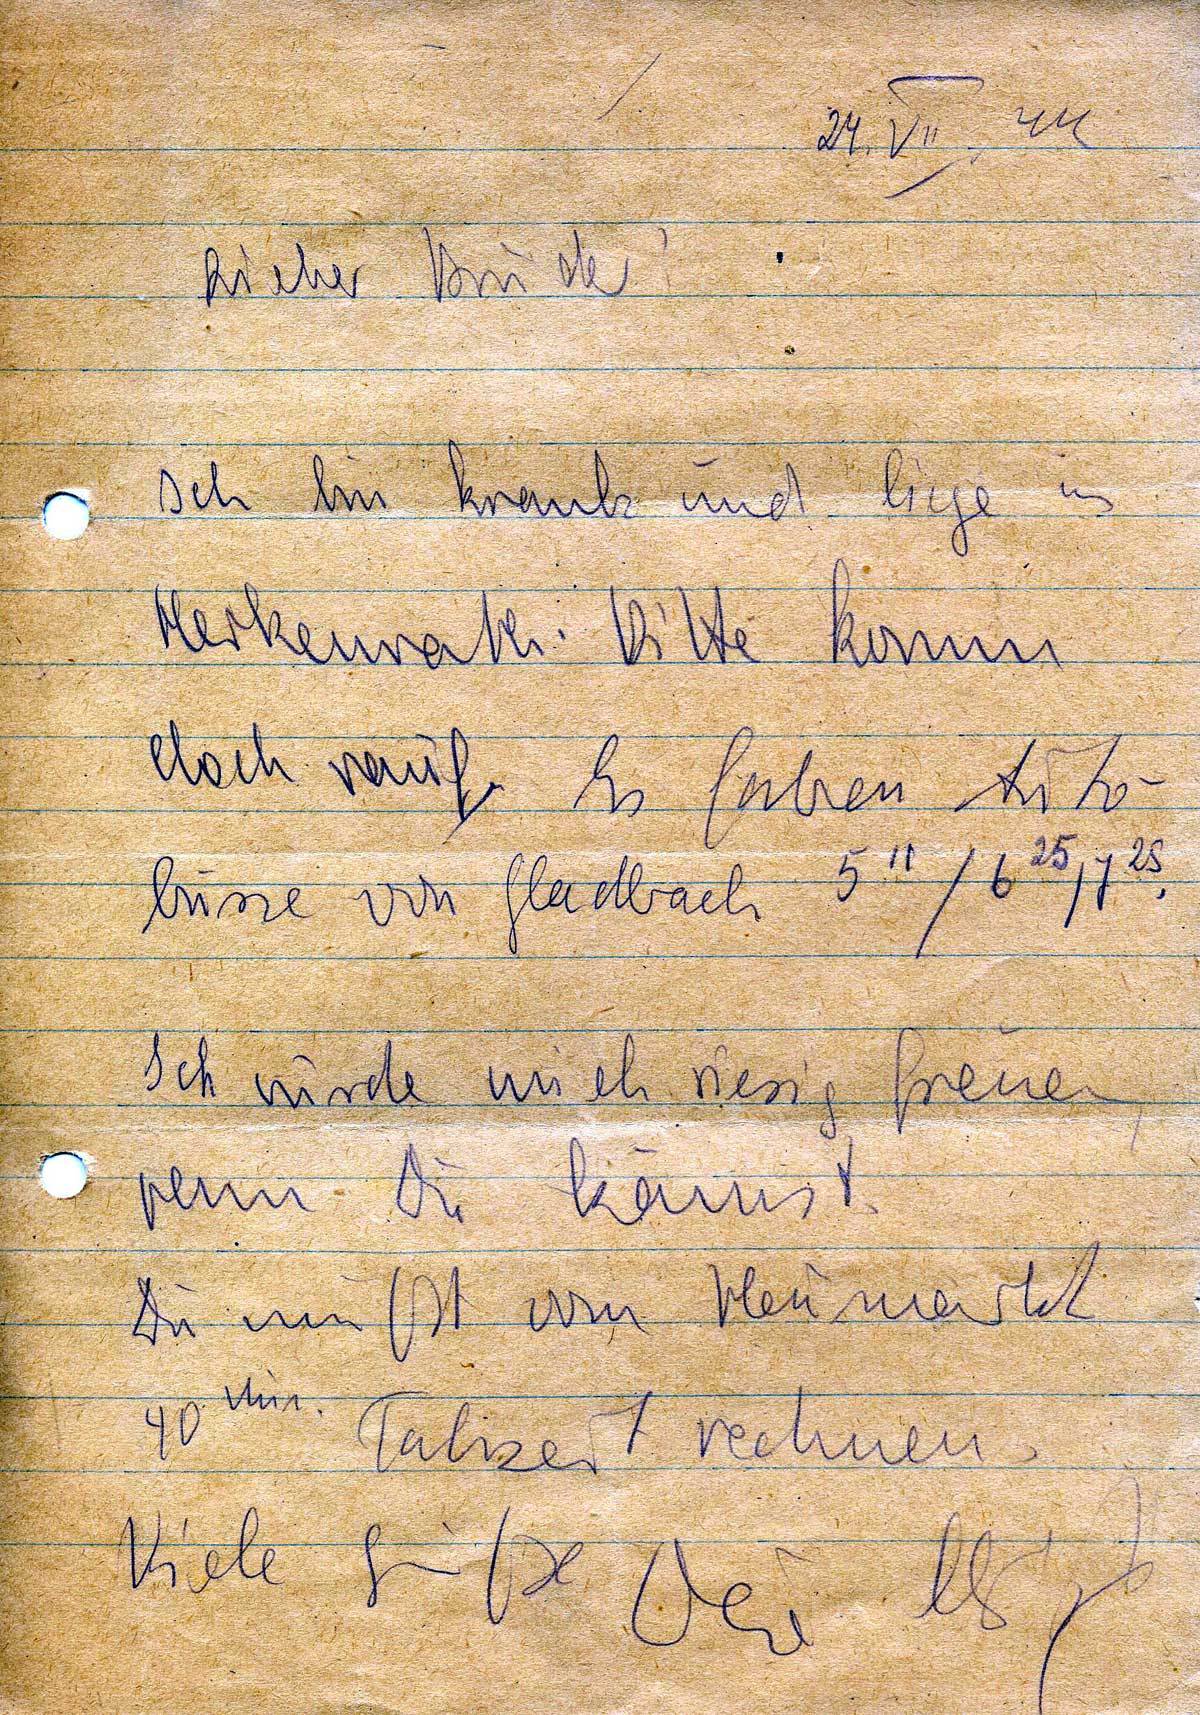 24. VII. 44
Lieber Bruder!
Ich bin krank und liege in
Herkenrath. Bitte komm
doch rauf. Es fahren Auto-
busse von Gladbach 5 11 / 6 25, 7 25.
Ich würde mich riesig freuen,
wenn Du kämst.
Du mußt vom Heumarkt
40 Min. Fahrzeit rechnen.
Viele Grüße Dein